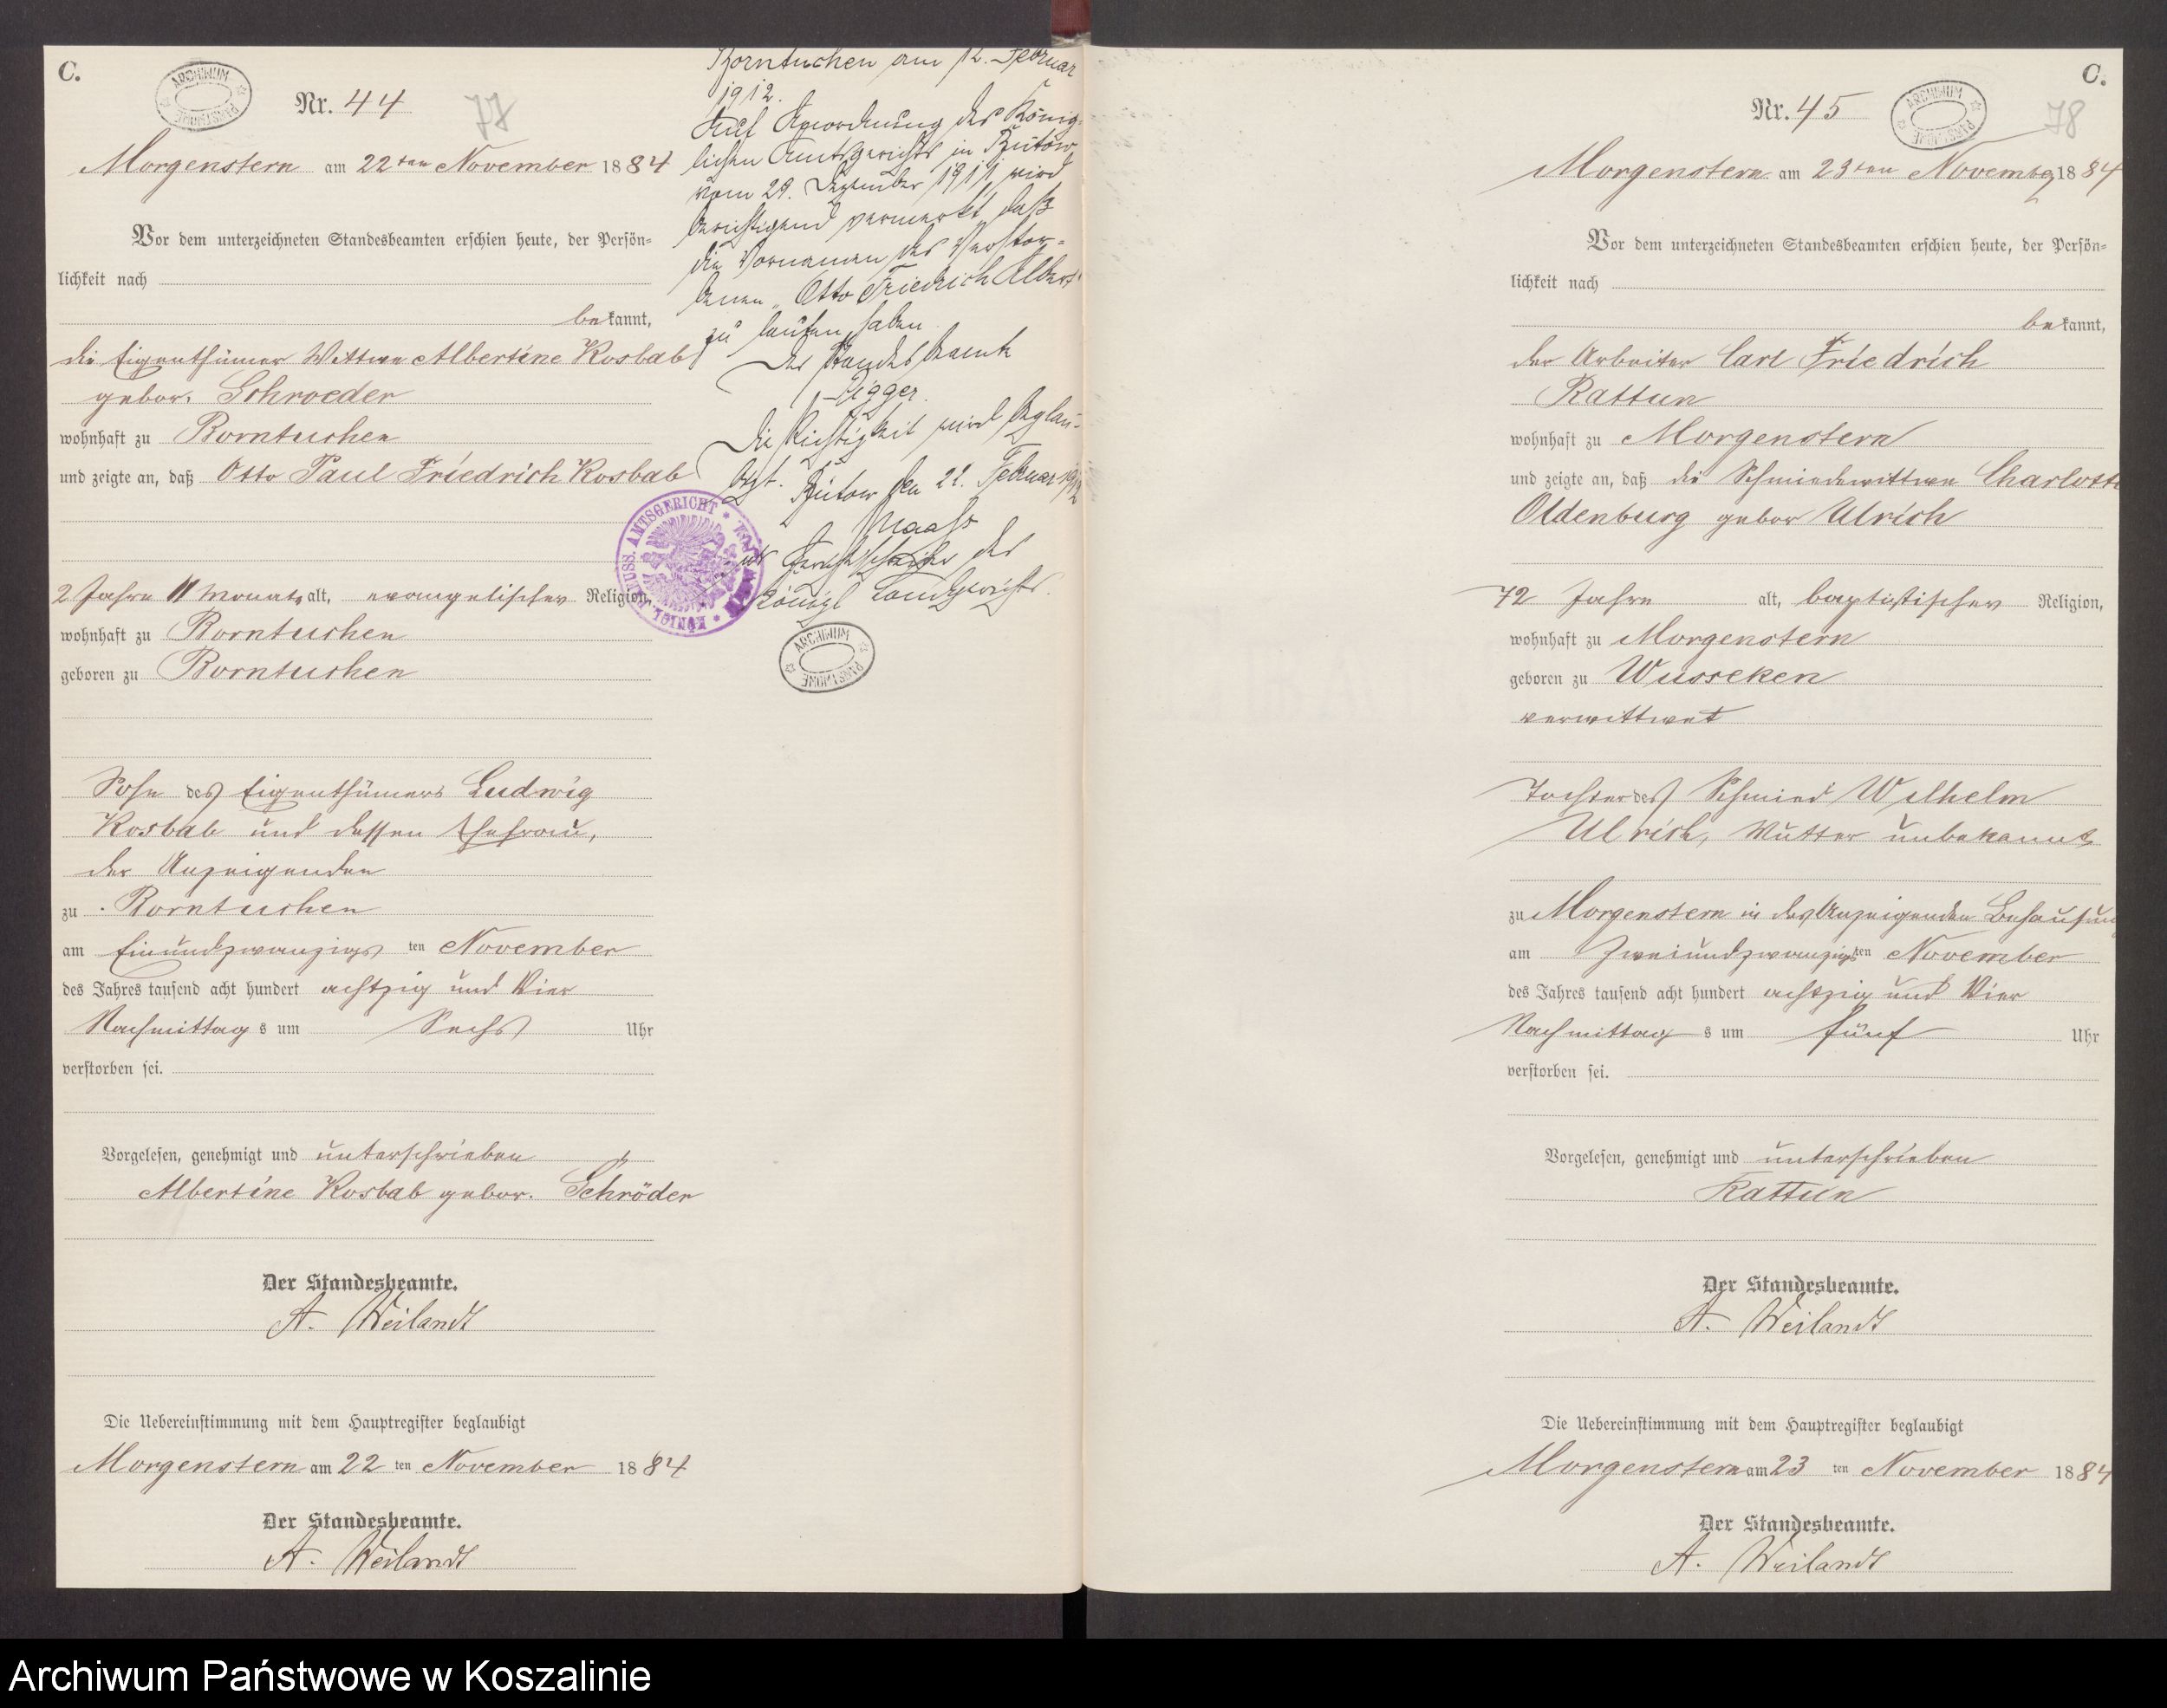 C.
ARCHIWUM PAŃSTWOWE
Nr. 44
77
Morgenstern am 22ten November 1884
Vor dem unterzeichneten Standesbeamten erschien heute, der Persön-
lichkeit nach
bekannt,
die Eigenthümer Wittwe Albertine Kosbab
gebor. Schroeder
wohnhaft zu Borntuchen
und zeigte an, daß Otto Paul Friedrich Kosbab
2 Jahre 11 Monate alt, evangelischer Religion,
wohnhaft zu Borntuchen
geboren zu Borntuchen
Sohn des Eigenthümers Ludwig
Kosbab und dessen Ehefrau,
der Anzeigenden
zu Borntuchen
am Einundzwanzigs ten November
des Jahres tausend acht hundert achtzig und Vier
Nachmittag s um Sechs Uhr
verstorben sei.
Vorgelesen, genehmigt und unterschrieben
Albertine Kosbab gebor. Schröder
Der Standesbeamte.
A. Weilandt
Die Uebereinstimmung mit dem Hauptregister beglaubigt
Morgenstern am 22 ten November 1884
Der Standesbeamte.
A. Weilandt
Borntuchen am 12. Februar
1912.
Auf Anordnung des König-
lichen Amtsgerichts in Bütow
vom 29. Dezember 1911 wird
berichtigend vermerkt, daß
die Vornamen des Verstor-
benen „Otto Friedrich Albert"
zu lauten haben.
Der Standesbeamte
Die Richtigkeit wird beglau-
bigt. Bütow den 22. Februar 1912
Maaß
Gerichtsschreiber des
Königl. Landgerichts.
KÖNIGL. PREUSS. AMTSGERICHT
ARCHIWUM PAŃSTWOWE
C.
Nr. 45
ARCHIWUM PAŃSTWOWE
78
Morgenstern am 23ten November 1884
Vor dem unterzeichneten Standesbeamten erschien heute, der Persön-
lichkeit nach
bekannt,
der Arbeiter Carl Friedrich
Rattun
wohnhaft zu Morgenstern
und zeigte an, daß die Schmiedewittwe Charlotte
Oldenburg gebor Ulrich
72 Jahre alt, baptistischer Religion,
wohnhaft zu Morgenstern
geboren zu Wusseken
verwittwet
Tochter des Schmied Wilhelm
Ulrich, Mutter unbekannt
zu Morgenstern in des Anzeigenden Behausung
am Zweiundzwanzigsten November
des Jahres tausend acht hundert achtzig und Vier
Nachmittag s um fünf Uhr
verstorben sei.
Vorgelesen, genehmigt und unterschrieben
Rattun
Der Standesbeamte.
A. Weilandt
Die Uebereinstimmung mit dem Hauptregister beglaubigt
Morgenstern am 23 ten November 1884
Der Standesbeamte.
A. Weilandt
Archiwum Państwowe w Koszalinie